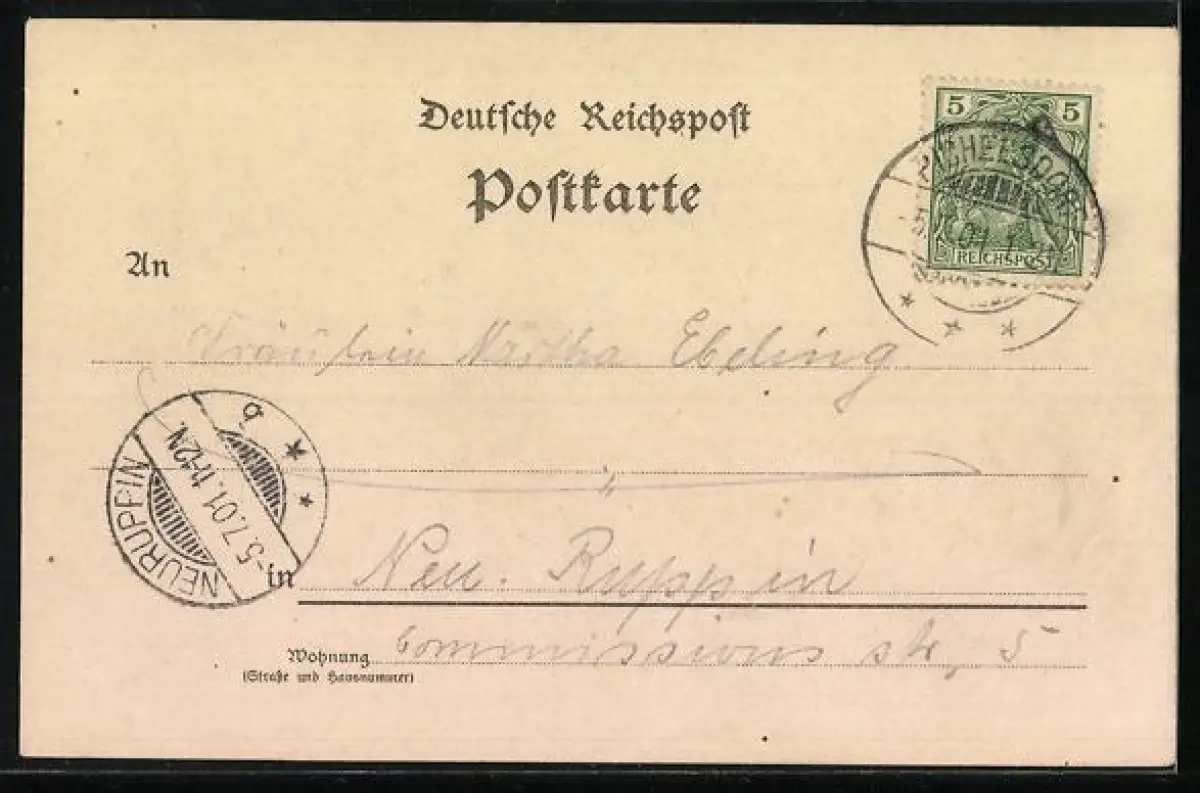 Deutsche Reichspost
Postkarte
5 5
RICHELSDORF
01
REICHSPOST
An
Fräulein Martha Ebeling
NEURUPPIN
-5.7.01. 11-12N.
in Neu-Ruppin
Wohnung Commissions str, 5
(Straße und Hausnummer)